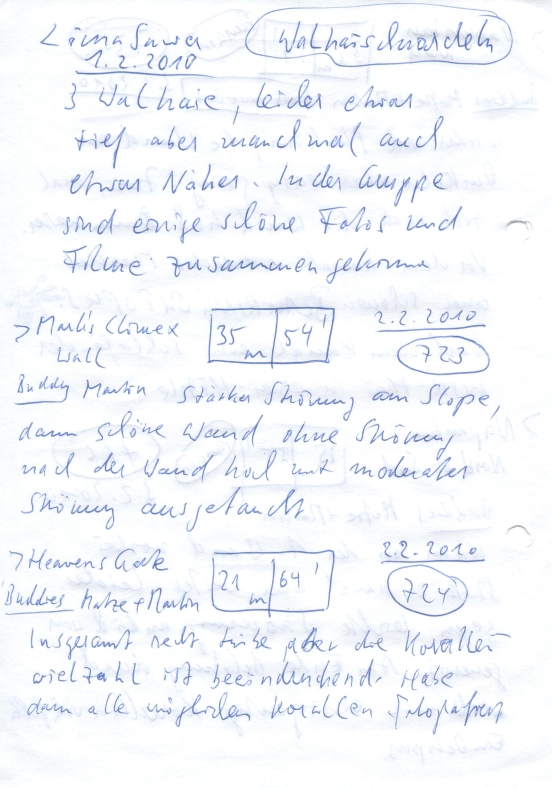 < Lima Sawa Walhaischnorcheln
1.2.2010
3 Walhaie, leider etwas
tief aber manchmal auch
etwas Näher. In der Gruppe
sind einige schöne Fotos und
Filme zusammen gekomme
> Mark's Climax 35 m 54' 2.2.2010
Wall 723
Buddy Martin starker Strömung am Slope,
dann schöne Wand ohne Strömung
nach der Wand mit moderater
Strömung ausgetaucht
> Heavens Gate 21 m 64' 2.2.2010
Buddies Matze + Martin 724
Insgesamt recht trübe aber die Korallen
vielzahl ist beeindruckend. Habe
dann alle möglichen Korallen fotografiert